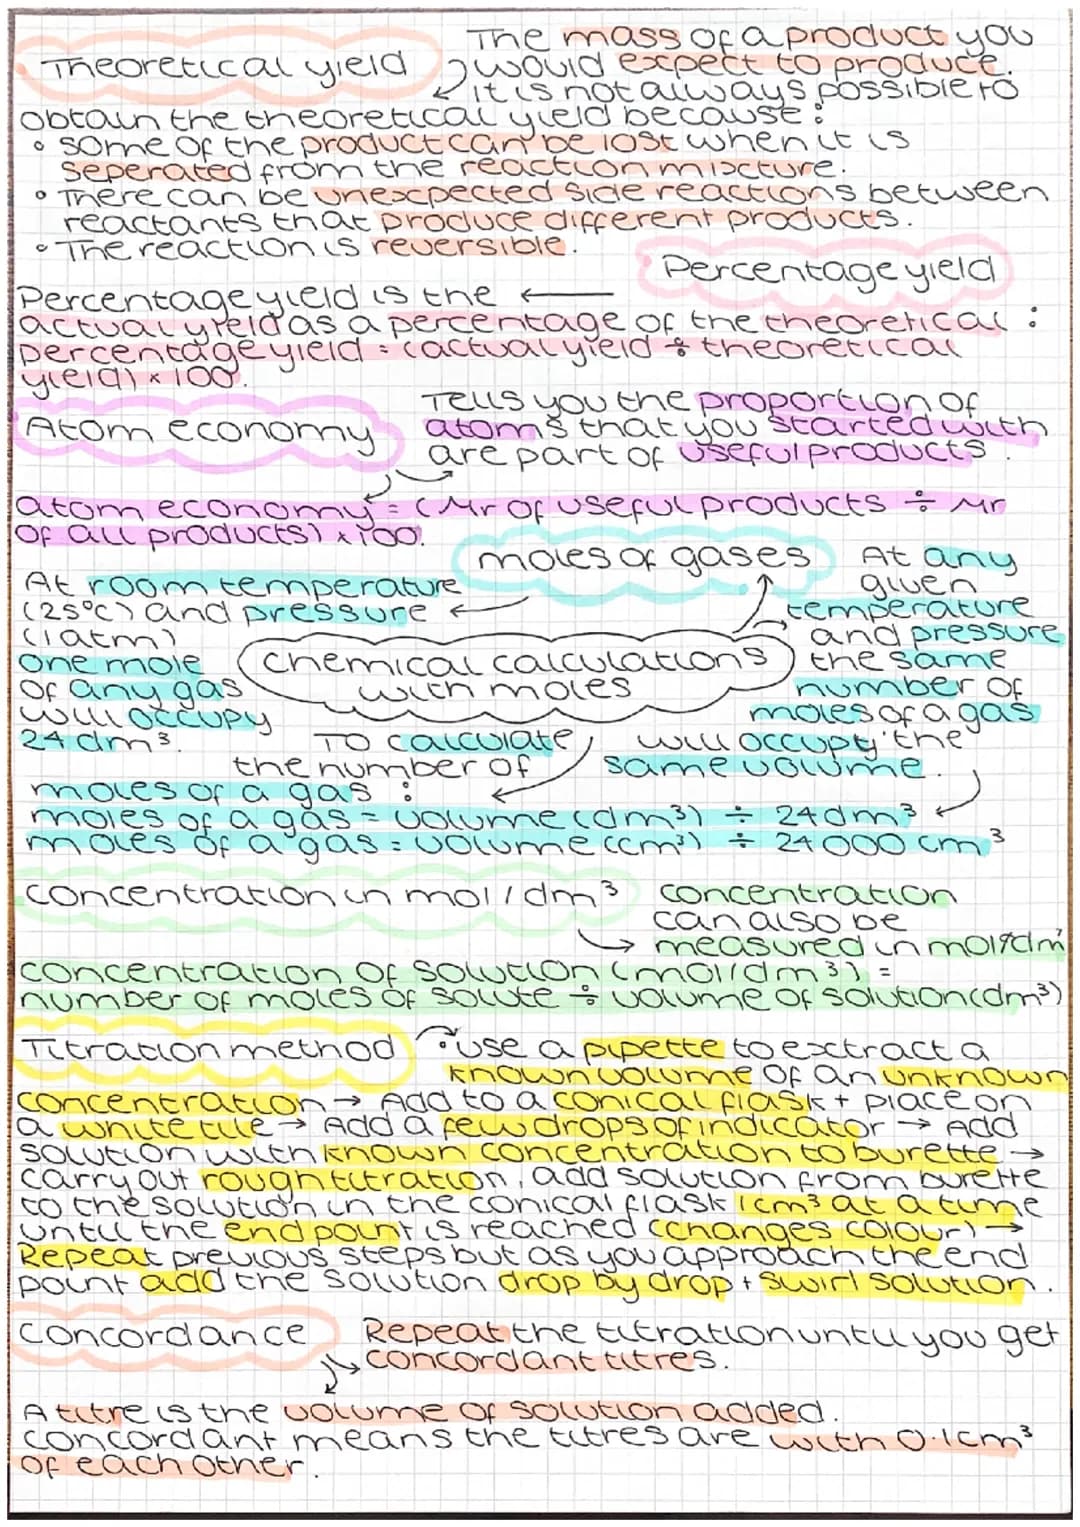 Theoretical yield
The mass of a product you
would expect to produce.
it is not always possible to
obtain the theoretical yield because:
• some of the product can be lost when it is
seperated from the reaction mixture.
• There can be unexpected side reactions between
reactants that produce different products.
• The reaction is reversible.
Percentage yield
Percentage yield is the
actual yield as a percentage of the theoretical:
percentage yield = (actual yield ÷ theoretical
yield) × 100.
Atom economy
Tells you the proportion of
atoms that you started with
are part of useful products.
atom economy = (Mr of useful products ÷ Mr
of all products) × 100.
moles of gases
At room temperature
(25°C) and pressure
(1atm)
one mole
of any gas
will occupy
24dm³.
At any
given
temperature
and pressure
the same
number of
moles of a gas
will occupy the
same volume.
chemical calculations
with moles
To calculate
the number of
moles of a gas:
moles of a gas = volume (dm³) ÷ 24dm³
moles of a gas = volume (cm³) ÷ 24000 cm³
concentration in mol/dm³
concentration
can also be
measured in mol/dm³
concentration of solution (mol/dm³) =
number of moles of solute ÷ volume of solution (dm³)
Titration method
• use a pipette to extract a
known volume of an unknown
concentration → Add to a conical flask + place on
a white tile → Add a few drops of indicator → Add
solution with known concentration to burette →
carry out rough titration, add solution from burette
to the solution in the conical flask 1cm³ at a time
until the end point is reached (changes colour) →
Repeat previous steps but as you approach the end
point add the solution drop by drop + swirl solution.
concordance
Repeat the titration until you get
concordant titres.
A titre is the volume of solution added.
concordant means the titres are with 0.1cm³
of each other.